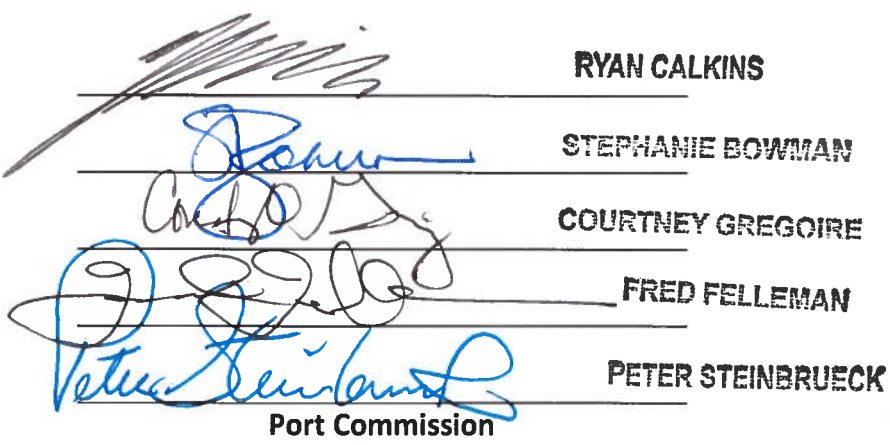 RYAN CALKINS
STEPHANIE BOWMAN
COURTNEY GREGOIRE
FRED FELLEMAN
Peter Steinbrueck PETER STEINBRUECK
Port Commission